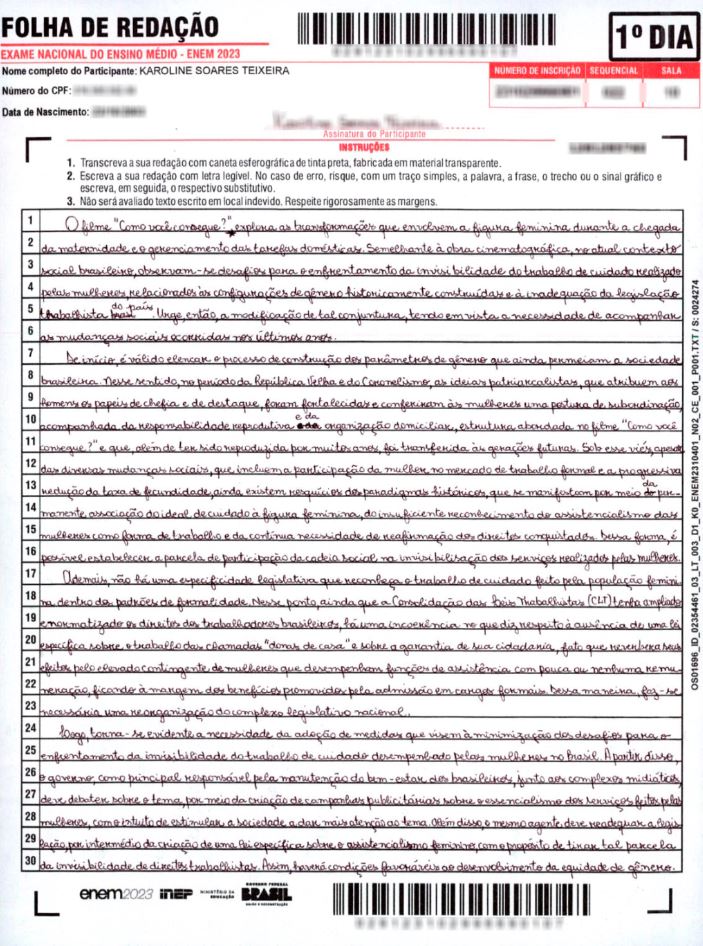 FOLHA DE REDAÇÃO
EXAME NACIONAL DO ENSINO MÉDIO - ENEM 2023
1º DIA
Nome completo do Participante: KAROLINE SOARES TEIXEIRA
Número do CPF:
Data de Nascimento:
NÚMERO DE INSCRIÇÃO SEQUENCIAL SALA
Assinatura do Participante
INSTRUÇÕES
1. Transcreva a sua redação com caneta esferográfica de tinta preta, fabricada em material transparente.
2. Escreva a sua redação com letra legível. No caso de erro, risque, com um traço simples, a palavra, a frase, o trecho ou o sinal gráfico e
escreva, em seguida, o respectivo substitutivo.
3. Não será avaliado texto escrito em local indevido. Respeite rigorosamente as margens.
1 O filme "Como você consegue?", explora as transformações que envolvem a figura feminina durante a chegada
2 da maternidade e o gerenciamento das tarefas domésticas. Semelhante à obra cinematográfica, no atual contexto
3 social brasileiro, observam-se desafios para o enfrentamento da invisibilidade do trabalho de cuidado realizado
4 pelas mulheres relacionados às configurações de gênero historicamente construídas e à inadequação da legislação
5 trabalhista brasi do país. Urge, então, a modificação de tal conjuntura, tendo em vista a necessidade de acompanhar
6 as mudanças sociais ocorridas nos últimos anos.
7 De início, é válido elencar o processo de construção dos parâmetros de gênero que ainda permeiam a sociedade
8 brasileira. Nesse sentido, no período da República Velha e do Coronelismo, as ideias patriarcalistas, que atribuem aos
9 homens os papeis de chefia e de destaque, foram fortalecidas e conferiram às mulheres uma postura de subordinação,
10 acompanhada da responsabilidade reprodutiva e da organização domiciliar, estrutura abordada no filme "Como você
11 consegue?" e que, além de ter sido reproduzida por muitos anos, foi transferida às gerações futuras. Sob esse viés, apesar
12 das diversas mudanças sociais, que incluem a participação da mulher no mercado de trabalho formal e a progressiva
13 redução da taxa de fecundidade, ainda existem resquícios dos paradigmas históricos, que se manifestam por meio da per-
14 manente associação do ideal de cuidado à figura feminina, do insuficiente reconhecimento do assistencialismo das
15 mulheres como forma de trabalho e da contínua necessidade de reafirmação dos direitos conquistados. Dessa forma, é
16 possível estabelecer a parcela de participação da cadeia social na invisibilisação dos serviços realizados pelas mulheres.
17 Ademais, não há uma especificidade legislativa que reconheça o trabalho de cuidado feito pela população femini
18 na dentro dos padrões de formalidade. Nesse ponto, ainda que a Consolidação das Leis Trabalhistas (CLT) tenha ampliado
19 e normatizado os direitos dos trabalhadores brasileiros, há uma incoerência no que diz respeito à ausência de uma lei
20 específica sobre o trabalho das chamadas "donas de casa" e sobre a garantia de sua cidadania, fato que reverbera seus
21 efeitos pelo elevado contingente de mulheres que desempenham funções de assistência com pouca ou nenhuma remu
22 neração, ficando à margem dos benefícios promovidos pela admissão em cargos formais. Dessa maneira, faz-se
23 necessária uma reorganização do complexo legislativo nacional.
24 Logo, torna-se evidente a necessidade da adoção de medidas que visem à minimização dos desafios para o
25 enfrentamento da invisibilidade do trabalho de cuidado desempenhado pelas mulheres no Brasil. A partir disso,
26 o governo, como principal responsável pela manutenção do bem-estar dos brasileiros, junto aos complexos midiáticos,
27 deve debater sobre o tema, por meio da criação de campanhas publicitárias sobre o essencialismo dos serviços feitos pelas
28 mulheres, com o intuito de estimular a sociedade a dar mais atenção ao tema. Além disso, o mesmo agente, deve readequar a legis
29 lação, por intermédio da criação de uma lei específica sobre o assistencialismo feminino, com o propósito de tirar tal parcela
30 da invisibilidade de direitos trabalhistas. Assim, haverá condições favoráveis ao desenvolvimento da equidade de gênero.
OS01696_ID_02354461_03_LT_003_D1_K0_ENEM2310401_N02_CE_001_P001.TXT / S: 0024274
enem2023 INEP MINISTÉRIO DA EDUCAÇÃO GOVERNO FEDERAL BRASIL UNIÃO E RECONSTRUÇÃO